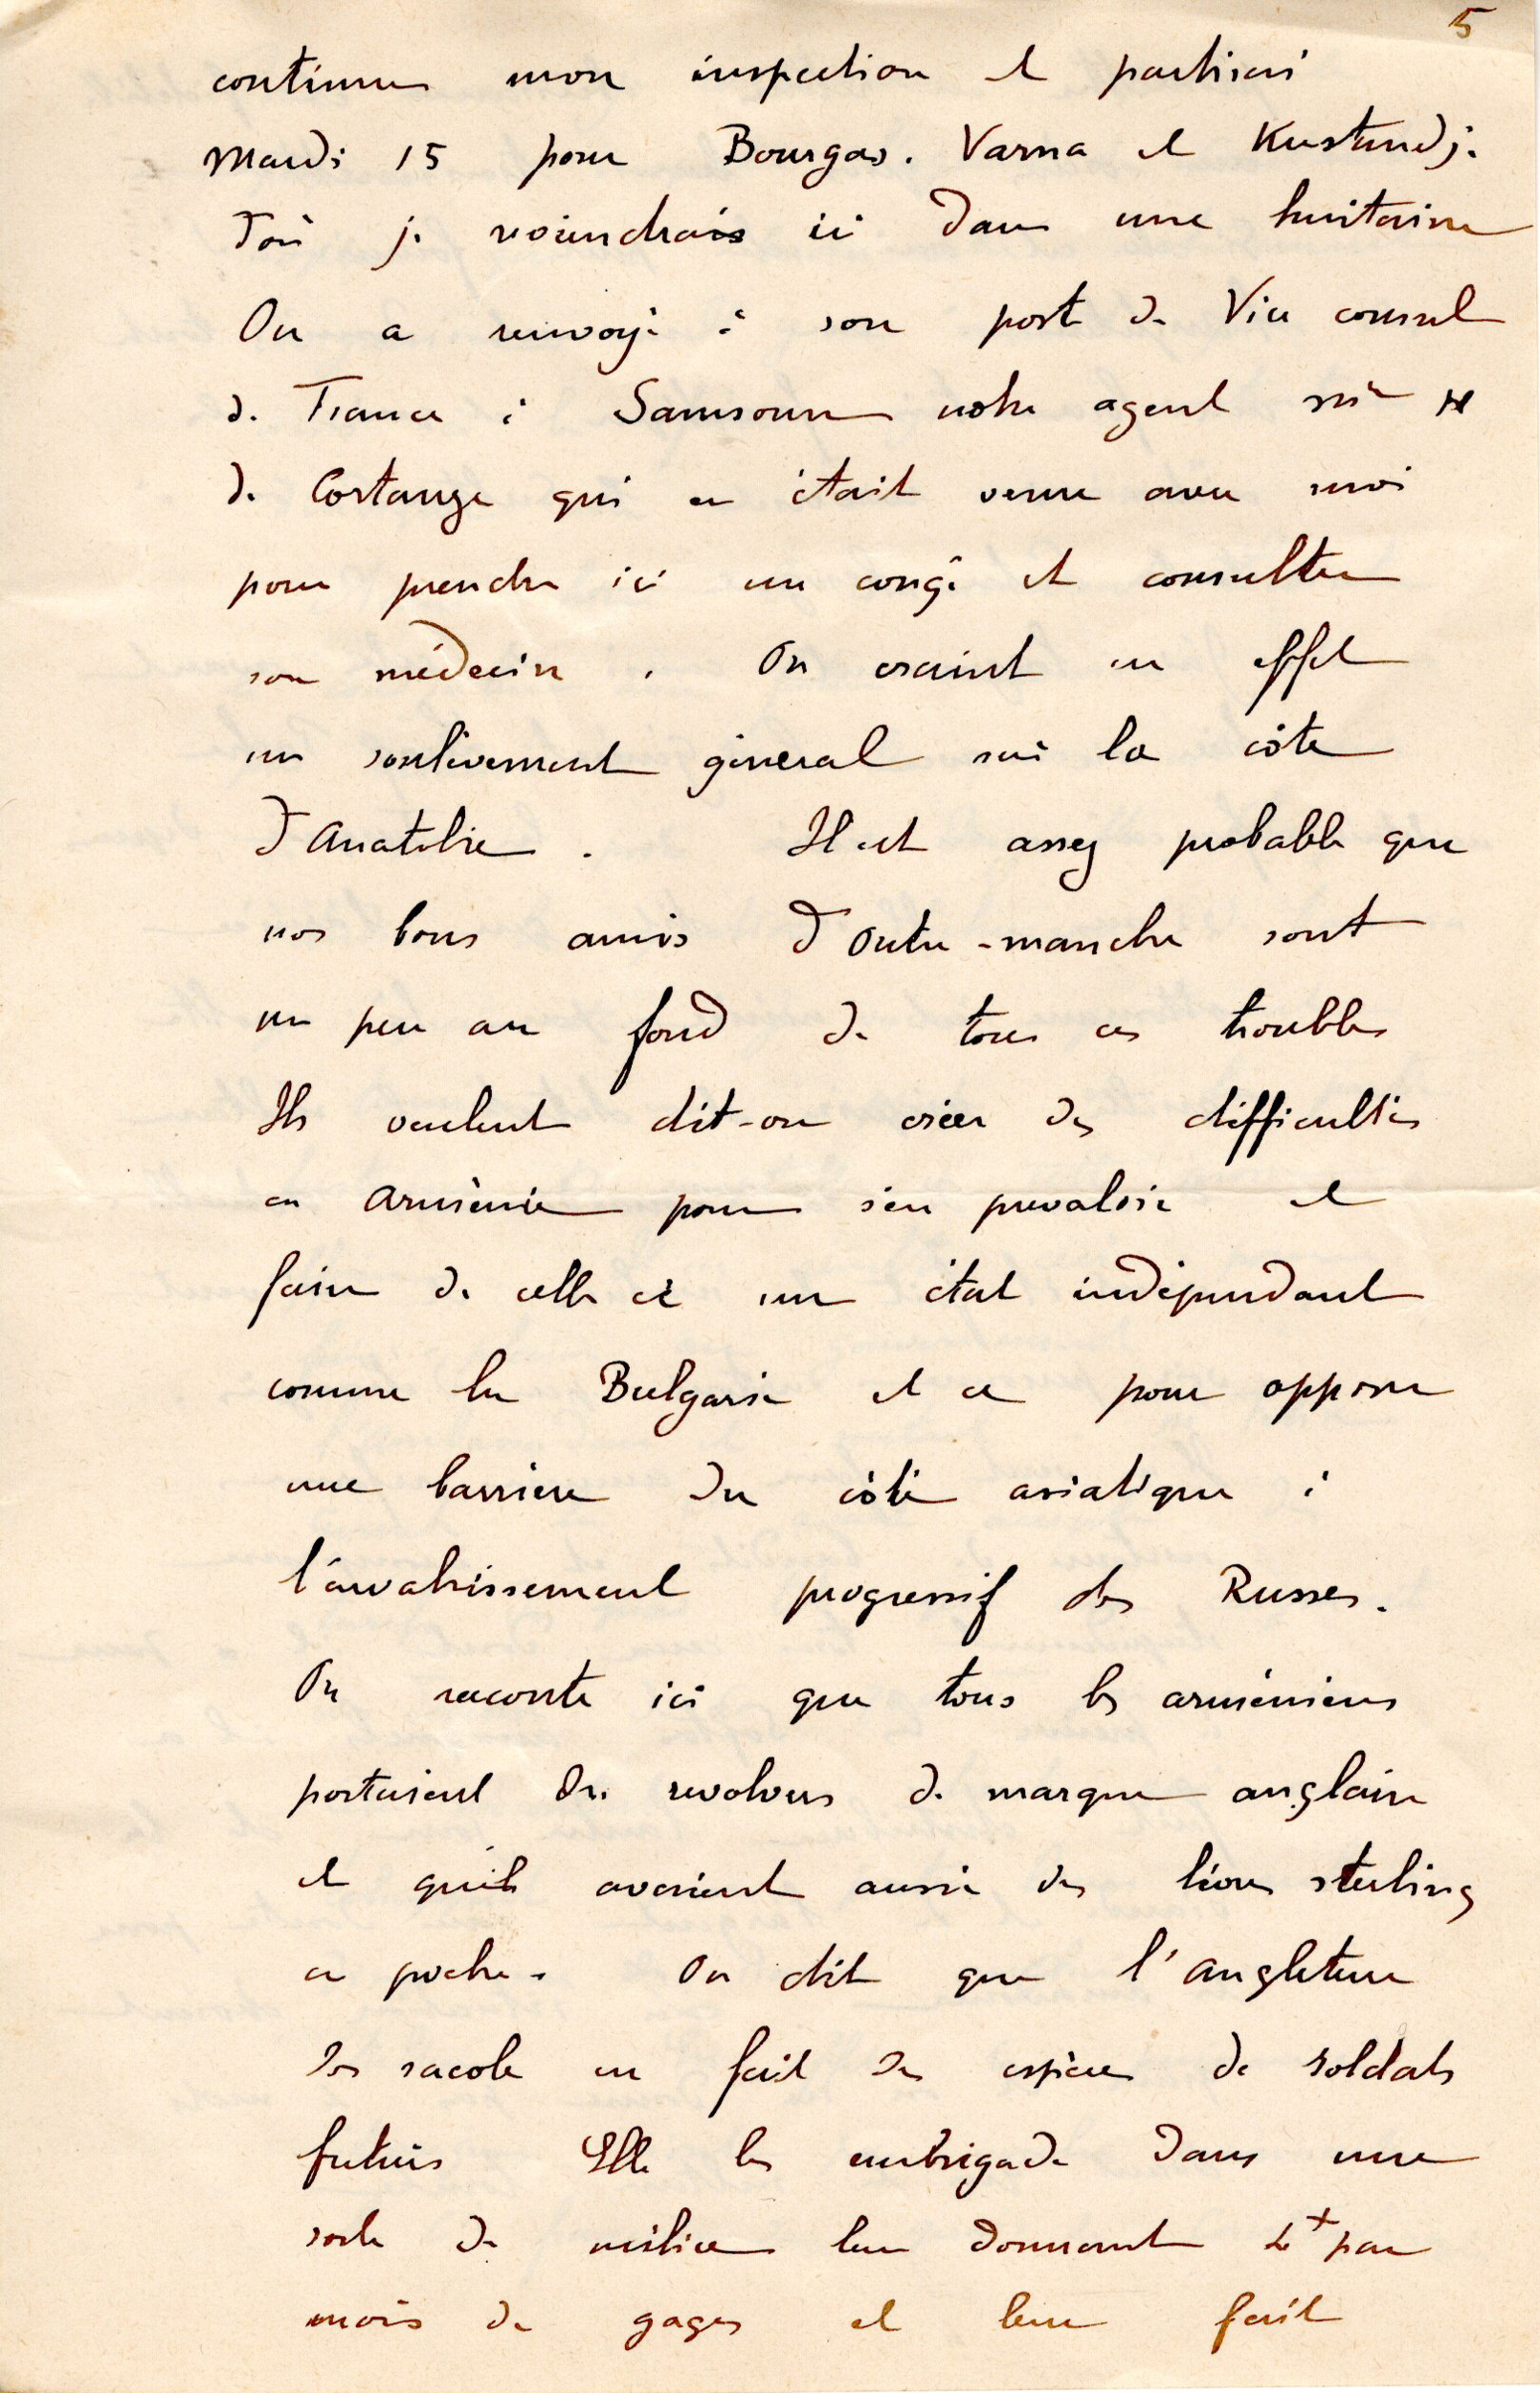 5
continuer mon inspection et partirai
Mardi 15 pour Bourgas. Varna et Kustendj.
d'où je reviendrais ici dans une huitaine
On a renvoyé à son poste de Vice consul
de France à Samsoun notre agent Mr
de Cortanze qui en était venu avec moi
pour prendre ici un congé et consulter
son médecin. On craint en effet
un soulèvement général sur la côte
d'Anatolie. Il est assez probable que
nos bons amis d'outre-manche sont
un peu au fond de tous ces troubles
Ils veulent dit-on créer des difficultés
en Arménie pour s'en prévaloir et
faire de celle ci un état indépendant
comme la Bulgarie et ce pour opposer
une barrière du côté asiatique à
l'envahissement progressif des Russes.
On raconte ici que tous les arméniens
portaient des revolvers de marque anglaise
et qu'ils avaient aussi des livres sterling
en poche. On dit que l'angleterre
les racole en fait des espèces de soldats
futurs Elle les embrigade dans une
sorte de milice leur donnant par
mois de gages et leur fait